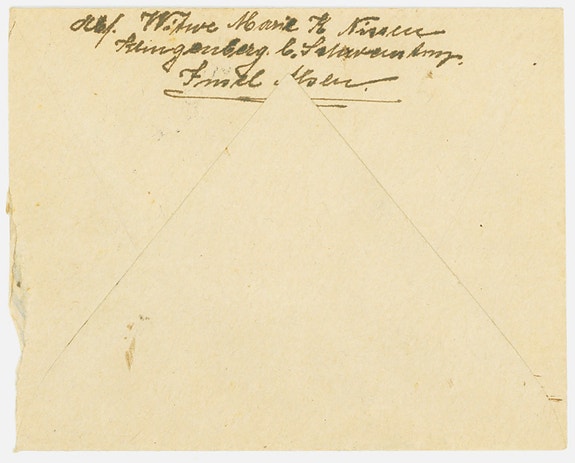 Abs. Witwe Marie K Nissen
Klingenberg b. Schwenstrup.
Insel Alsen.